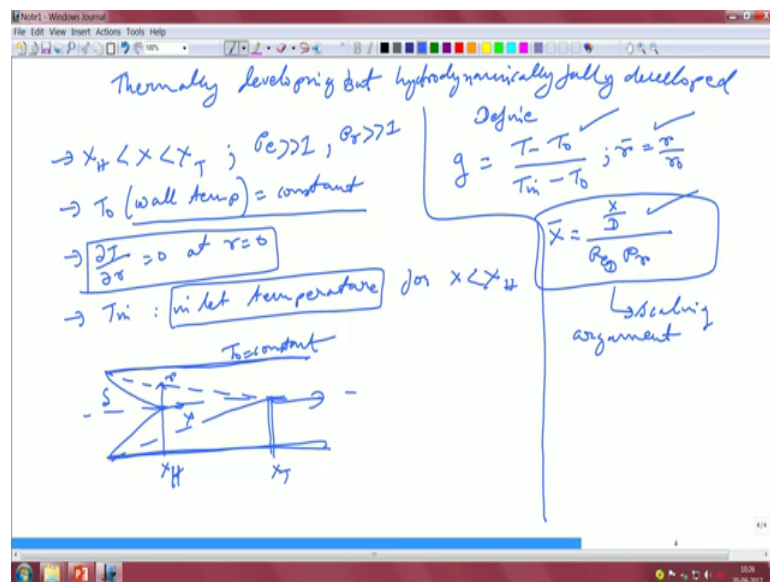 Note1 - Windows Journal
File Edit View Insert Actions Tools Help
100%
Thermally developing but hydrodynamically fully developed
→ x_H < x < x_T ; Pe >> 1 , Pr >> 1
→ T₀ (wall temp) = constant
→ ∂T/∂r = 0 at r = 0
→ Tin : inlet temperature for x < x_H
T₀ = constant
δ
r
x
x_H
x_T
Define
g = (T - T₀)/(Tin - T₀) ; r̄ = r/r₀
x̄ = (x/D)/(Re_D Pr)
↳ scaling
argument
4/4
4
10:26
20-09-2017